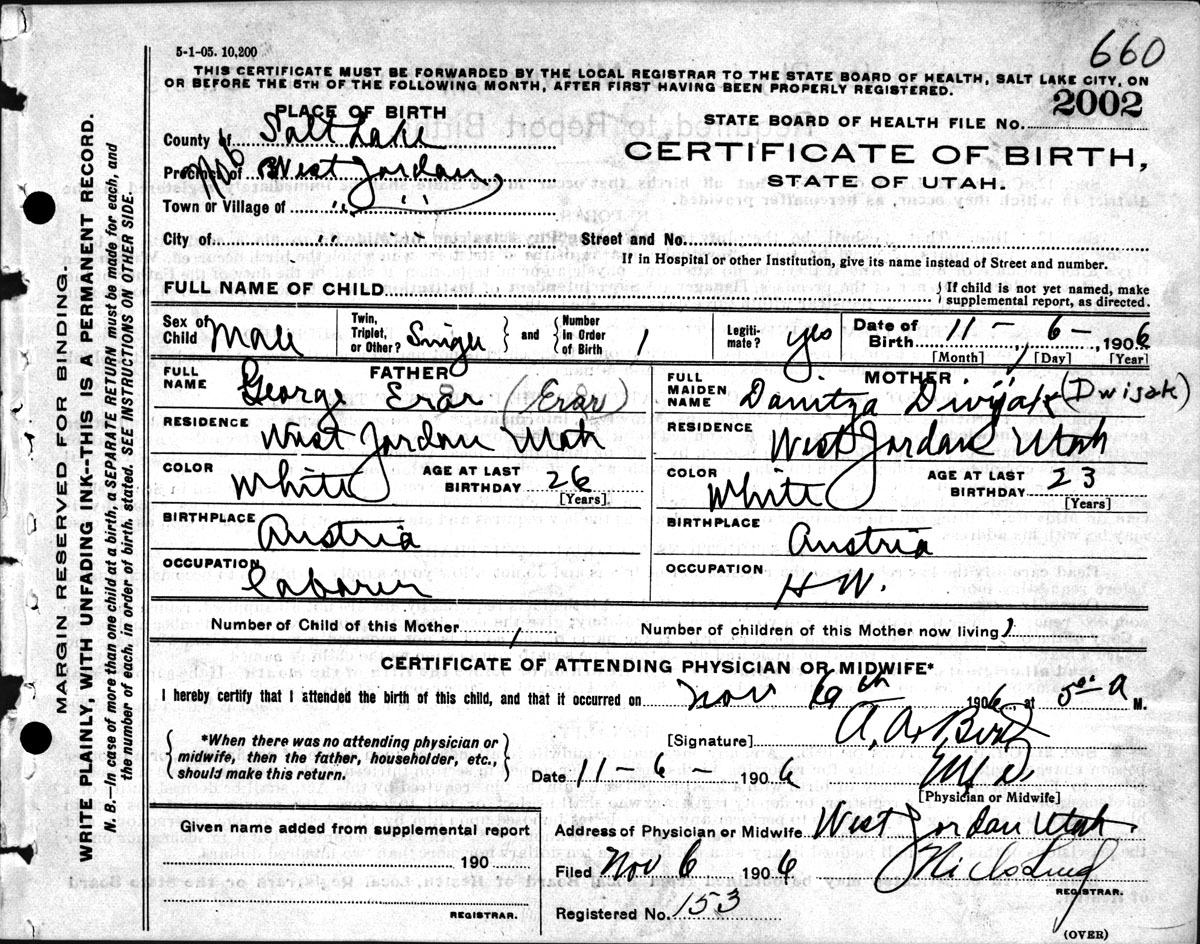 660
5-1-05. 10,200
THIS CERTIFICATE MUST BE FORWARDED BY THE LOCAL REGISTRAR TO THE STATE BOARD OF HEALTH, SALT LAKE CITY, ON
OR BEFORE THE 5TH OF THE FOLLOWING MONTH, AFTER FIRST HAVING BEEN PROPERLY REGISTERED.
PLACE OF BIRTH
County of Salt Lake
Precinct of West Jordan
Town or Village of " "
City of " "
STATE BOARD OF HEALTH FILE No. 2002
CERTIFICATE OF BIRTH,
STATE OF UTAH.
Street and No.
If in Hospital or other Institution, give its name instead of Street and number.
FULL NAME OF CHILD } If child is not yet named, make
supplemental report, as directed.
Sex of Child Male Twin, Triplet, or Other? Single } and { Number In Order of Birth 1 Legiti- mate? yes Date of Birth 11 - 6 - , 1906
[Month] [Day] [Year]
FATHER
FULL NAME George Erar (Erar)
RESIDENCE West Jordan Utah
COLOR White AGE AT LAST BIRTHDAY 26
[Years]
BIRTHPLACE Austria
OCCUPATION Laborer
MOTHER
FULL MAIDEN NAME Danitza Dwijak (Dwisak)
RESIDENCE West Jordan Utah
COLOR White AGE AT LAST BIRTHDAY 23
[Years]
BIRTHPLACE Austria
OCCUPATION H.W.
Number of Child of this Mother 1 Number of children of this Mother now living 1
CERTIFICATE OF ATTENDING PHYSICIAN OR MIDWIFE*
I hereby certify that I attended the birth of this child, and that it occurred on Nov 6th 1906, at 5 00 A M.
{ *When there was no attending physician or
midwife, then the father, householder, etc.,
should make this return. }
[Signature] A. A.
M.D.
Date 11 - 6 - 1906
[Physician or Midwife]
Given name added from supplemental report
190
REGISTRAR.
Address of Physician or Midwife West Jordan Utah
Filed Nov 6 1906
REGISTRAR.
Registered No. 153
(OVER)
MARGIN RESERVED FOR BINDING.
WRITE PLAINLY, WITH UNFADING INK--THIS IS A PERMANENT RECORD.
N. B.—In case of more than one child at a birth, a SEPARATE RETURN must be made for each, and
the number of each, in order of birth, stated. SEE INSTRUCTIONS ON OTHER SIDE.